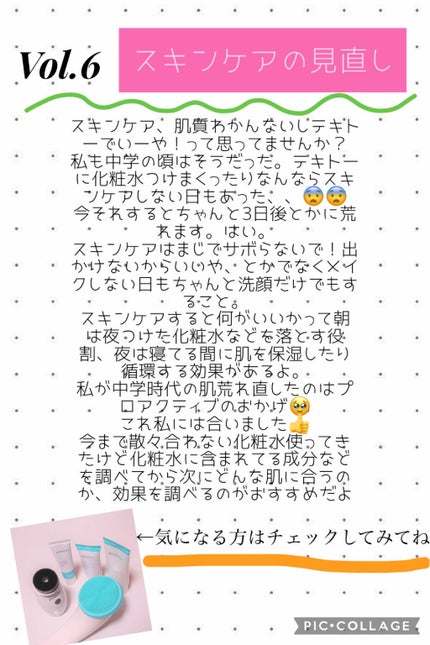 Vol.6
スキンケアの見直し
スキンケア、肌質わかんないしテキト
ーでいーや！って思ってませんか？
私も中学の頃はそうだった。テキトー
に化粧水つけまくったりなんならスキ
ンケアしない日もあった、、😨😨
今それするとちゃんと3日後とかに荒
れます。はい。
スキンケアはまじでサボらないで！出
かけないからいいや、とかでなくメイ
クしない日もちゃんと洗顔だけでもす
ること。
スキンケアすると何がいいかって朝
は夜つけた化粧水などを落とす役
割、夜は寝てる間に肌を保湿したり
循環する効果があるよ。
私が中学時代の肌荒れ直したのはプ
ロアクティブのおかげ🥹
これ私には合いました👍
今まで散々合わない化粧水使ってき
たけど化粧水に含まれてる成分など
を調べてから次にどんな肌に合うの
か、効果を調べるのがおすすめだよ
←気になる方はチェックしてみてね
PIC•COLLAGE